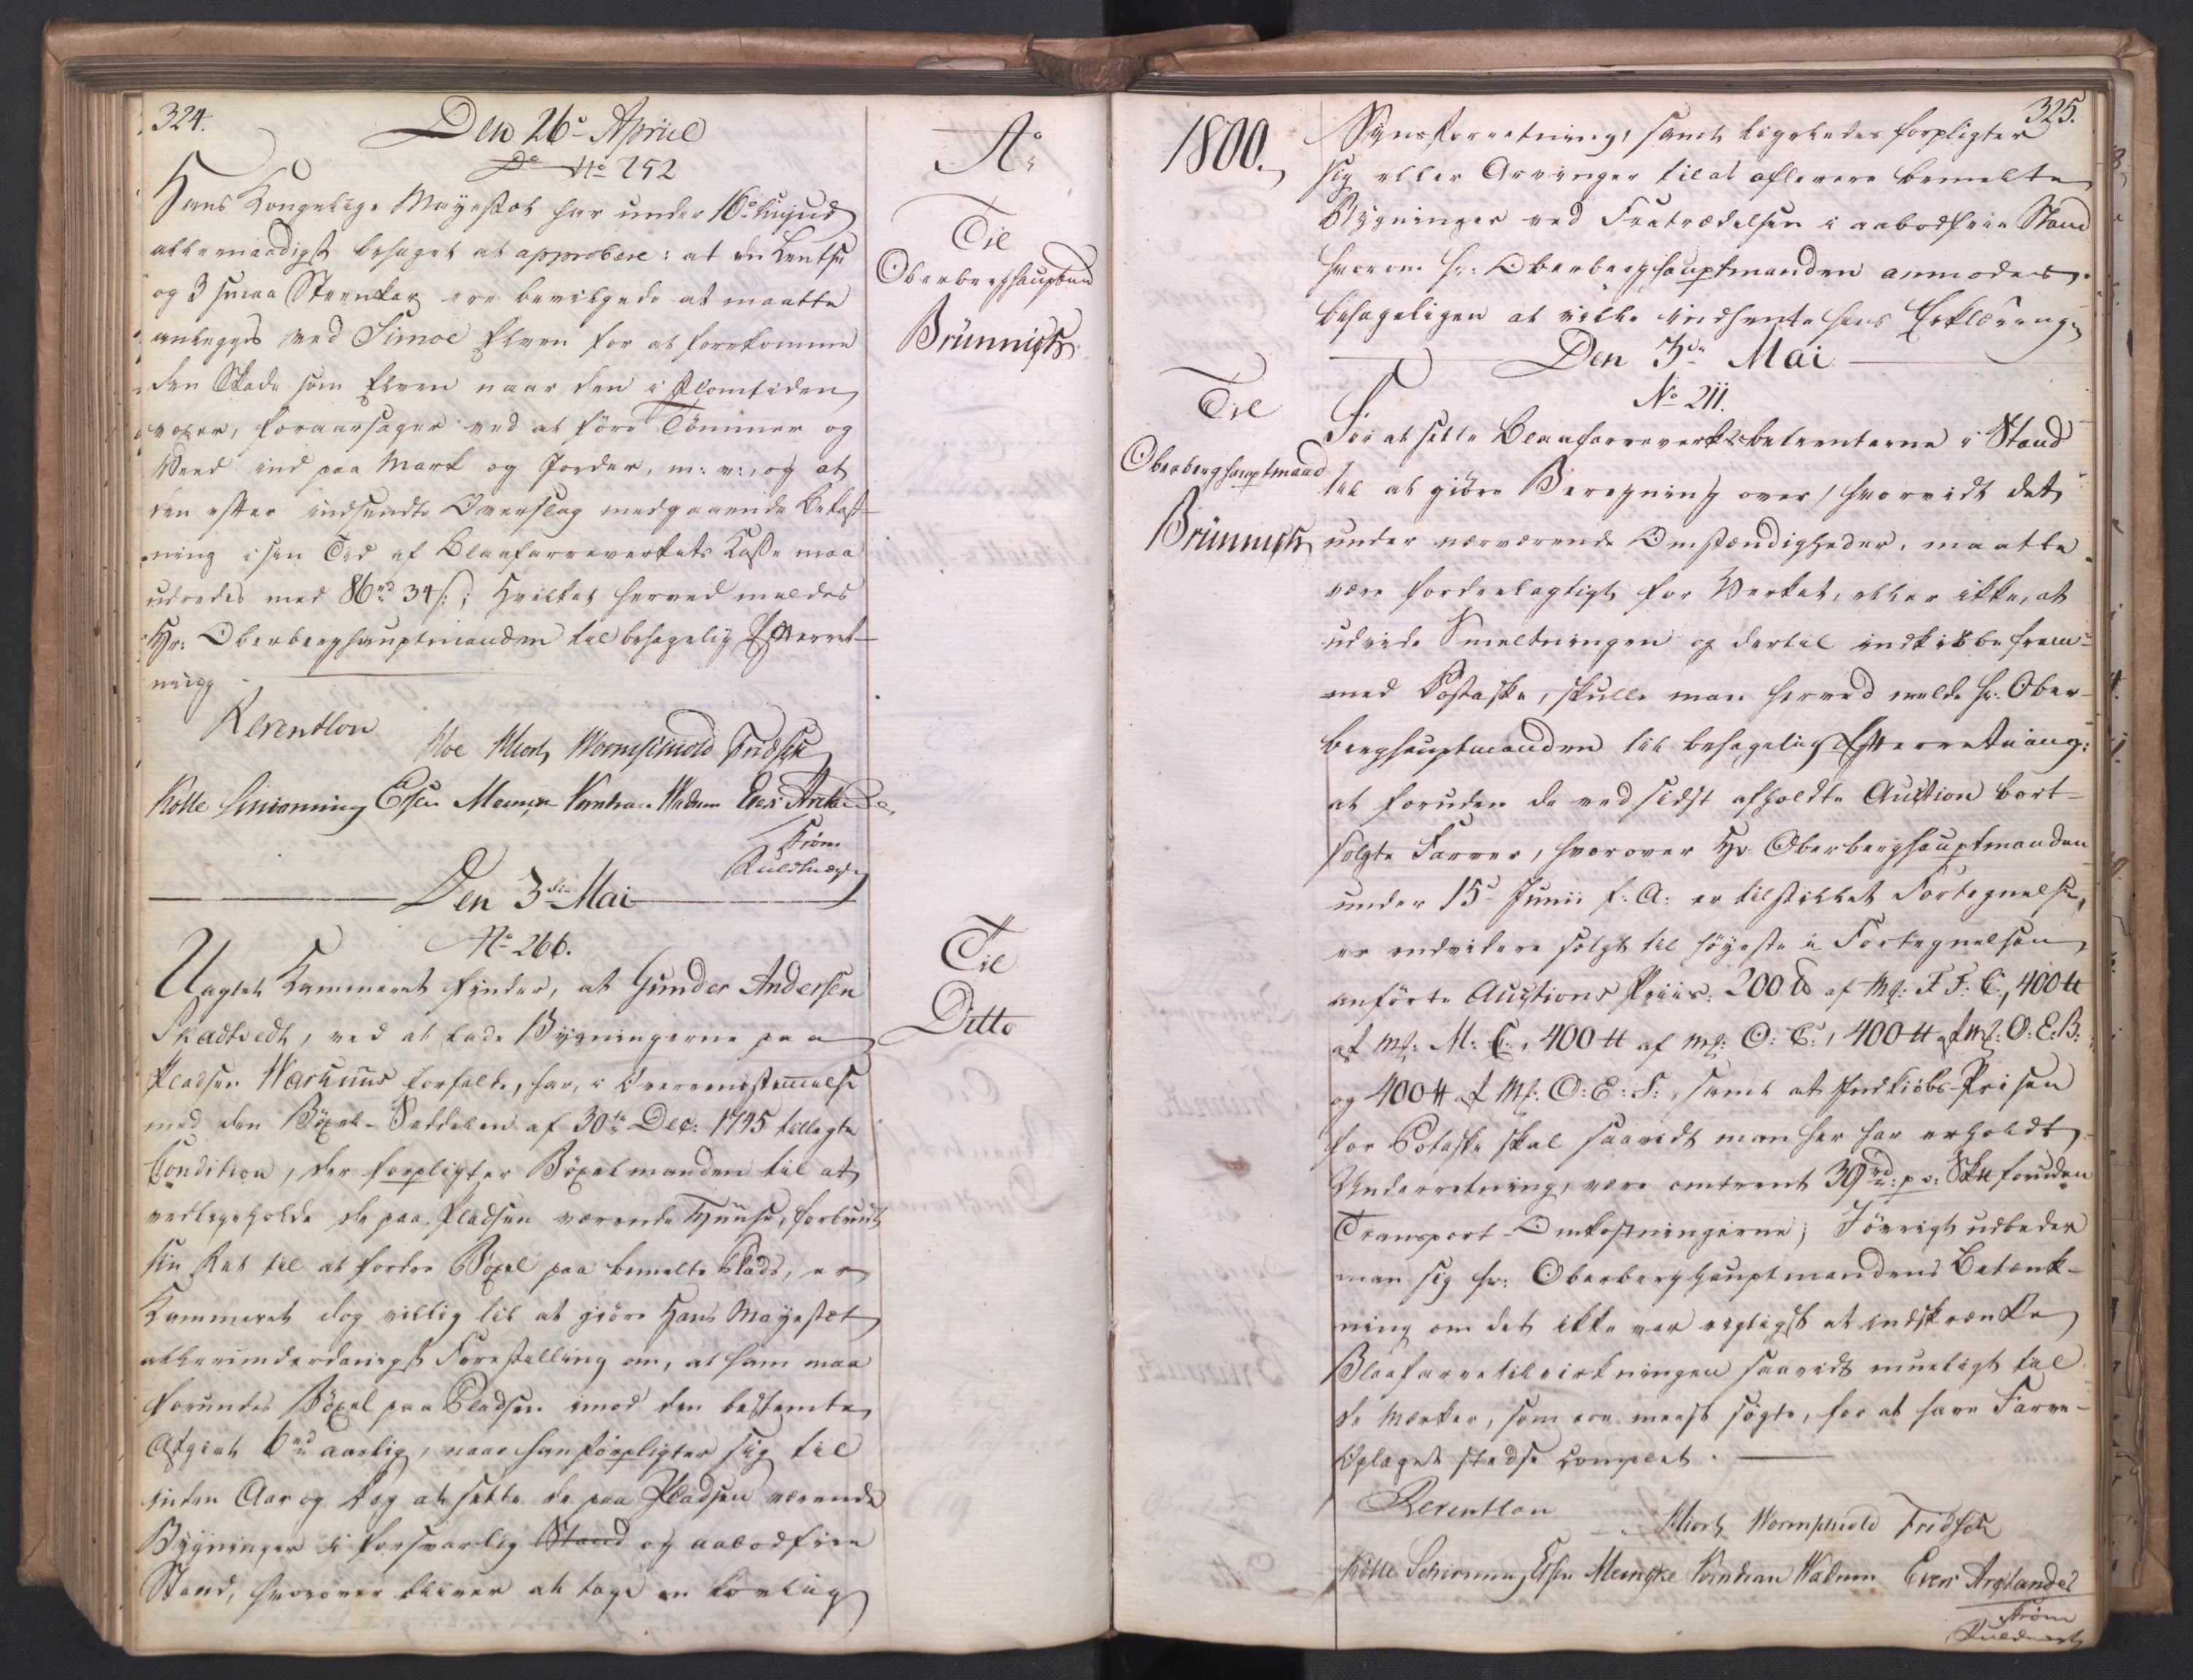 324.
Den 26de April
No 252
Hans Kongelige Mayestæt har under 16de hujus
allernaadigst behaget at approbere: at en Lentse
og 3 smaa Steenkar ere bevilgede at maatte
anlægges ved Simoe Elven for at forekomme
den Skade som Elven naar den i Flomtiden
voxer, foraarsager ved at före Tömmer og
Veed ind paa Mark og Jorder, m: v:, og at
den efter indsendte Overslag medgaaende Bekost-
ning i sin Tid af Blaafarveverkets Casse maa
udredes med 86rd 34s:; Hvilket herved meldes
Hr: Oberberghauptmanden til behagelig Efterret-
ning.
Reventlou
Moe Hiort Wormskiold Fridsch
Kölle Schiönning Essen Meincke Kornbeau Wadum Evers Arctander
Ström
Den 3die Mai
No 266.
Uagtet Kammeret finder, at Gunder Andersen
Skadtvedt, ved at lade Bygningerne paa
Pladsen forfalde, har, i Overeensstemmelse
med den Böxel-Seddelen af 30te Dec: 1745 tillagte
Condition, der forpligter Böxelmanden til at
vedligeholde de paa Pladsen værende Huuse, forbrudt
sin Ret til at fordre Böxel paa bemelte Plads, er
Kammeret dog villig til at giöre Hans Mayestæt
allerunderdanigst Forestilling om, at ham maa
forundes Böxel paa Pladsen imod den bestemte
Afgivt 6rd aarlig, naar han forpligter sig til
inden Aar og Dag at sette de paa Pladsen værende
Bygninger i forsvarlig Stand og aabodfrie
Stand, hvorover bliver at tage en lovlig
Ao
Til
Oberberghauptmand
Brünnich
Til
Ditto
1800.
325.
Synsforretning, samt ligeledes forpligter
sig eller Arvinger til at aflevere bemelte
Bygninger ved Fratrædelsen i aabodfrie Stand
hvorom Hr: Oberberghauptmanden anmodes
behageligen at ville indhente hans Erklæring.
Den 3die Mai
No 211.
Til
Oberberghauptmand
Brünnich
For at sette Blaafarveverksbetienterne i Stand
til at giöre Beregning over, hvorvidt det
under nærværende Omstændigheder, maatte
være fordeelagtigt for Verket, eller ikke, at
udvide Smeltningen og dertil indkiöbe frem-
med Potaske, skulle man herved melde Hr: Ober-
berghauptmanden til behagelig Efterretning:
at foruden de ved sidst afholdte Auction bort-
solgte Farver, hvorover Hr Oberberghauptmanden
under 15de Junii f: A: er tilstillet Fortegnelse,
er endvidere solgt til höyeste i Fortegnelsen
anförte Auctions Priis: 200 ℔ af Mk: F. F. C., 400 ℔
af Mk: M: C., 400 ℔ af Mk: O: C:, 400 ℔ af Mk: O: E. B:
og 400 ℔ af Mk: O: E: S:, samt at Indkiöbs-Prisen
for Potaske skal saavidt man her har erholdt
Underretning, være omtrent 39rd: pr: Sk℔ foruden
Transport-Omkostningerne; Iövrigt udbeder
man sig Hr: Oberberghauptmandens Betænk-
ning om det ikke var rigtigst at indskrænke
Blaafarvetilvirkningen saavidt mueligt til
de Mærker, som ere meest sögte, for at have Farve-
Oplaget stedse complet.
Reventlou
Hiort Wormskiold Fridsch
Kölle Schiönning Essen Meincke Kornbeau Wadum Evers Arctander
Ström